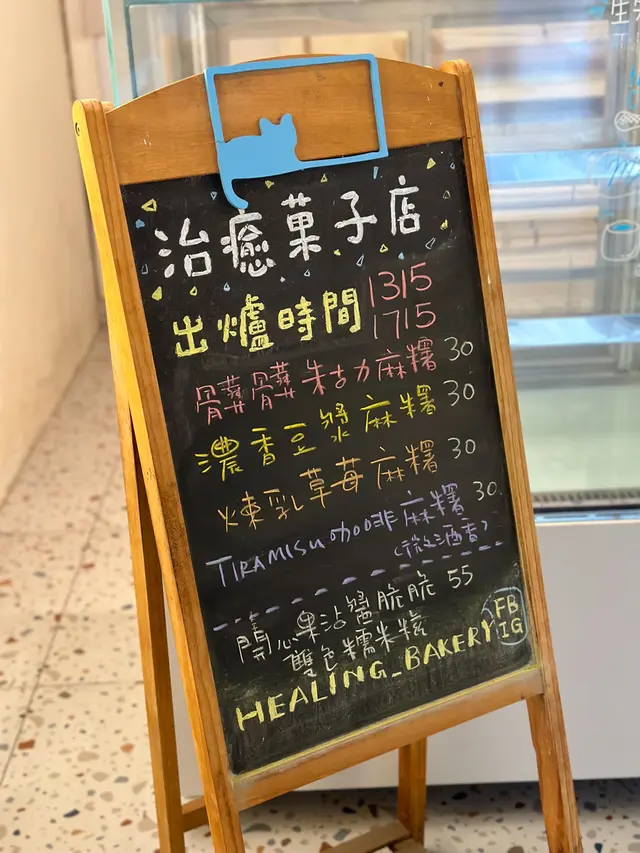 治癒菓子店
出爐時間 1315
1715
髒髒朱古力麻糬 30
濃香豆漿麻糬 30
煉乳草莓麻糬 30
TIRAMISU咖啡麻糬 30
(微酒香)
開心果沾醬脆脆 55
雙色糯米糍
HEALING_BAKERY
FB
IG